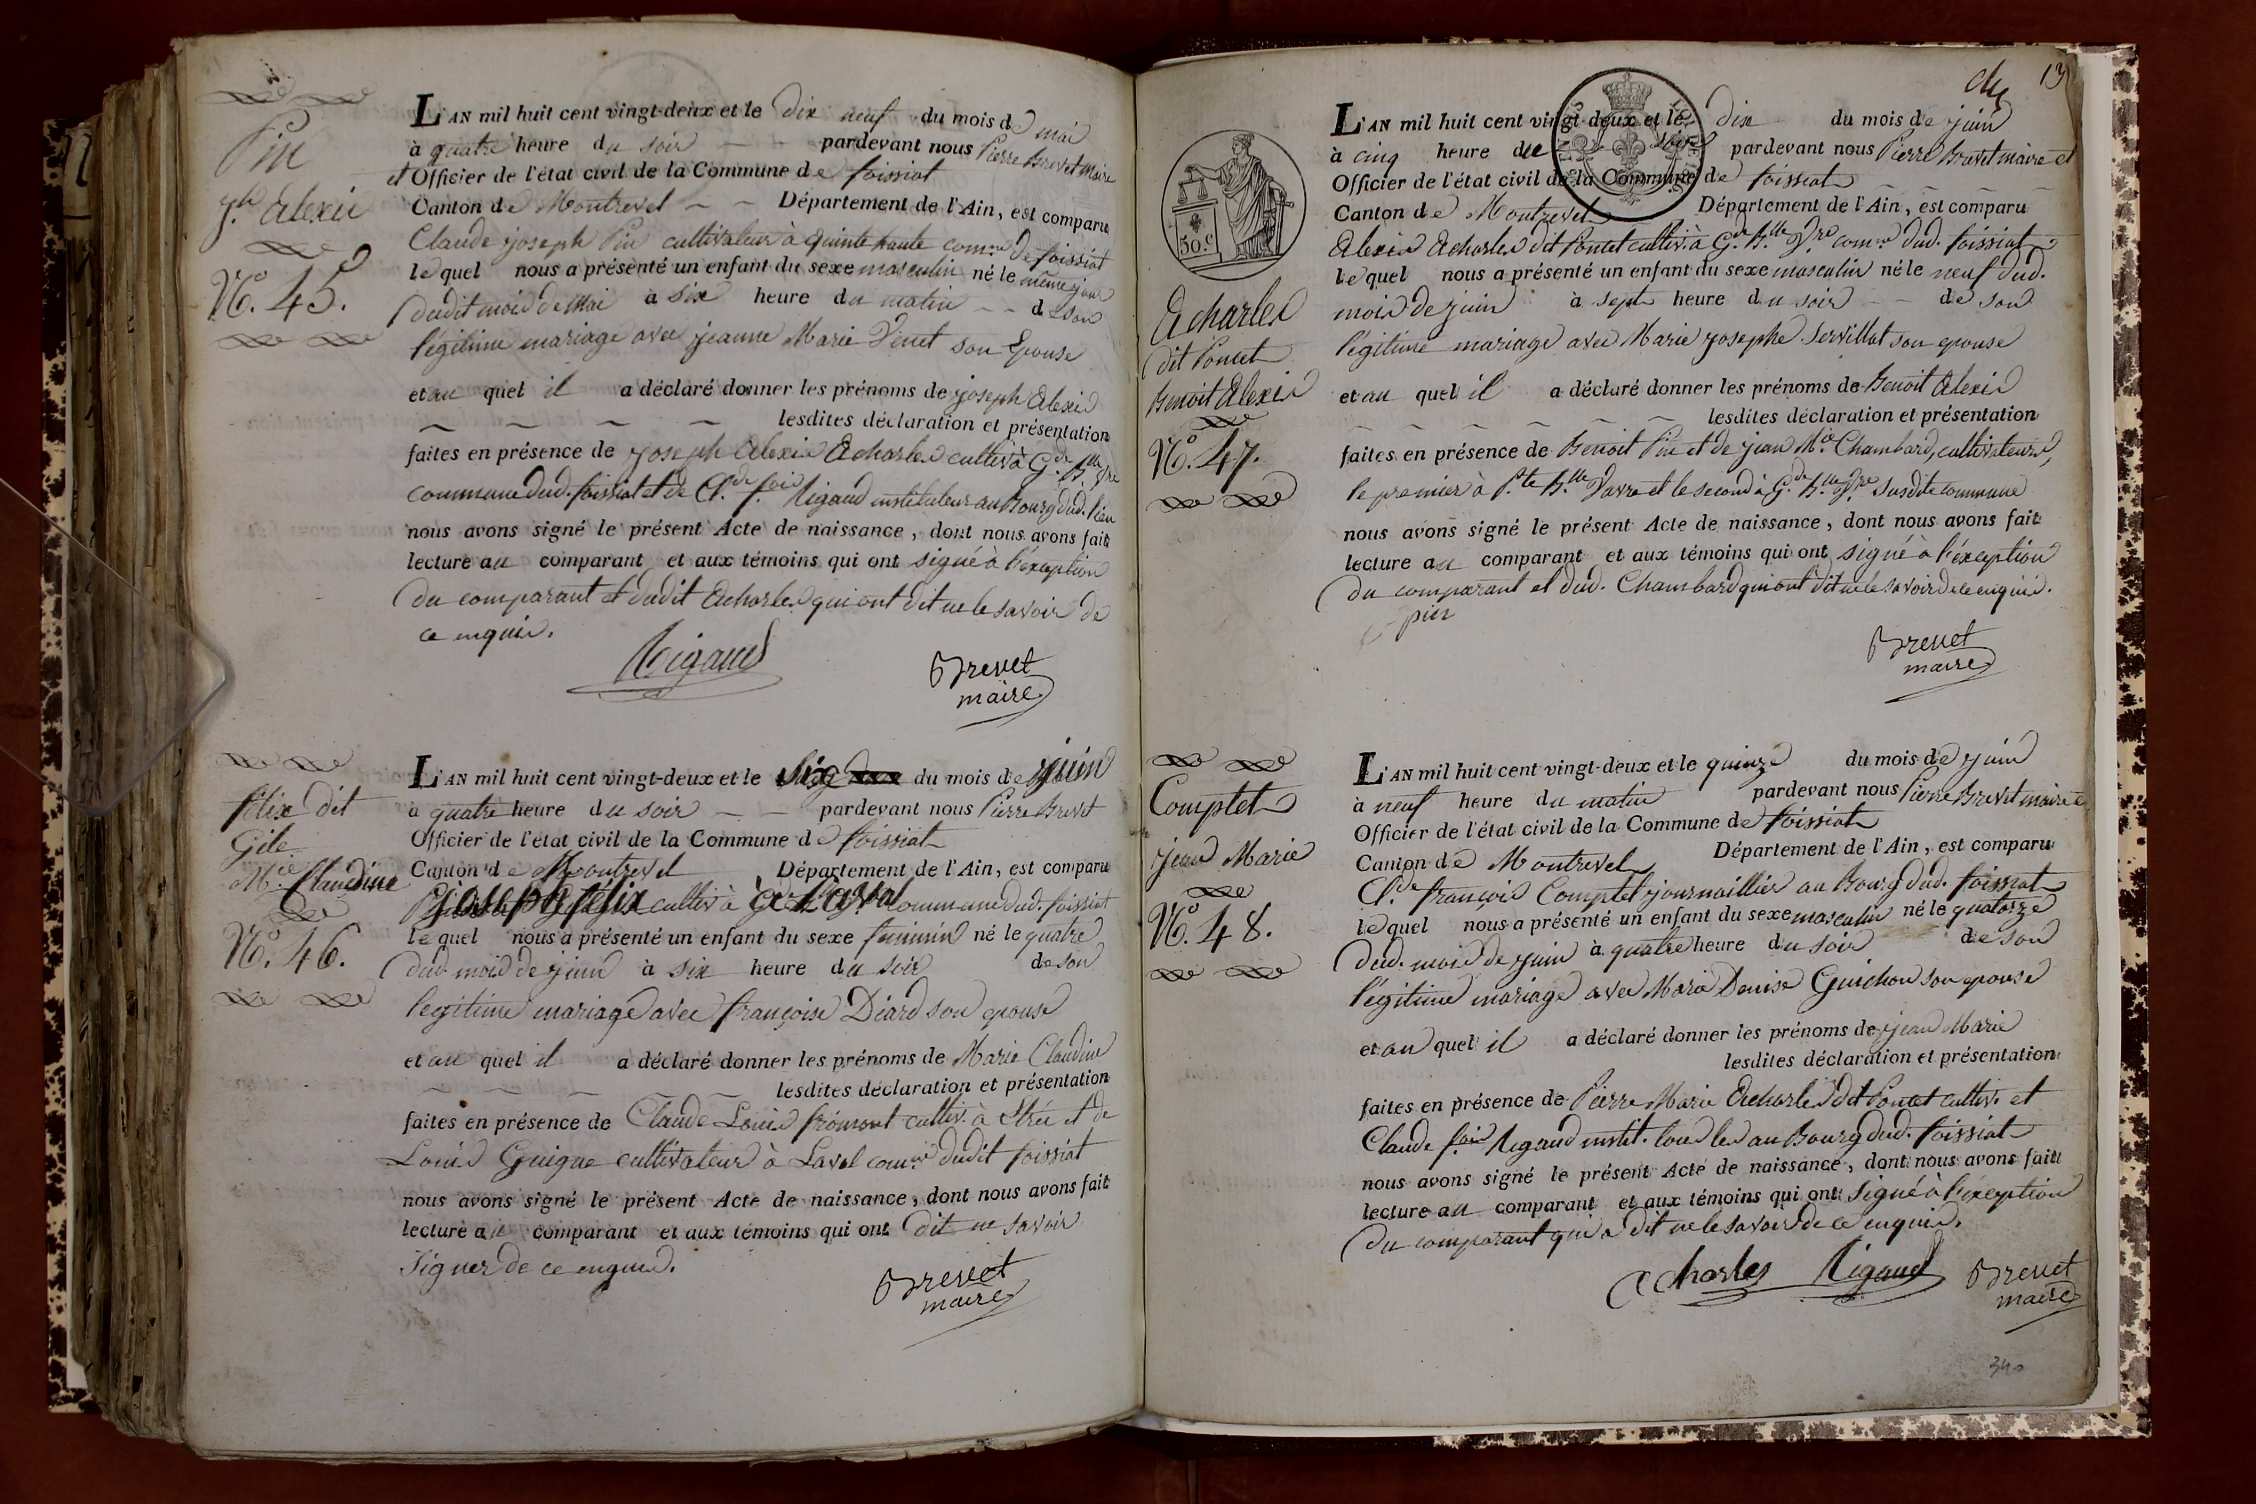 Pin
jh. Alexis
N.º 45.
L'AN mil huit cent vingt-deux et le dix neuf du mois de mai
à quatre heure du soir pardevant nous Pierre Brevet Maire
et Officier de l'état civil de la Commune de foissiat
Canton de Montrevel Département de l'Ain, est comparu
Claude joseph Pin cultivateur à quinte haute comne de foissiat
lequel nous a présenté un enfant du sexe masculin né le même jour
dudit mois de Mai à six heure du matin de son
légitime mariage avec jeanne Marie Venet son Epouse
et au quel il a déclaré donner les prénoms de joseph Alexis
lesdites déclaration et présentation
faites en présence de joseph Alexis Acharles cultivr. à Gde. Blle. Vre
commune dud. foissiat et de Cde. fois Rigaud instituteur au Bourg dud. lieu
nous avons signé le présent Acte de naissance, dont nous avons fait
lecture au comparant et aux témoins qui ont signé à l'éxception
du comparant et dudit Acharles qui ont dit ne le savoir de
ce enquis.
Rigaud
Brevet
maire
félix dit
Gile
Mie. Claudine
N.º 46.
L'AN mil huit cent vingt-deux et le Six du mois de juin
à quatre heure du soir pardevant nous Pierre Brevet
Officier de l'état civil de la Commune de foissiat
Canton de Montrevel Département de l'Ain, est comparu
joseph félix cultivr. à Laval commune dud. foissiat
lequel nous a présenté un enfant du sexe feminin né le quatre
dud. mois de juin à six heure du soir de son
legitime mariage avec françoise Diard son epouse
et au quel il a déclaré donner les prénoms de Marie Claudine
lesdites déclaration et présentation
faites en présence de Claude Louis frémont cultiv. à Strée et de
Louis Guigue cultivateur à Laval comne dudit foissiat
nous avons signé le présent Acte de naissance, dont nous avons fait
lecture au comparant et aux témoins qui ont dit ne savoir
signer de ce enquis.
Brevet
maire
13
50.c
Acharles
dit Poncet
Benoit Alexis
N.º 47.
L'AN mil huit cent vingt-deux et le dix du mois de juin
à cinq heure du soir pardevant nous Pierre Brevet maire et
Officier de l'état civil de la Commune de foissiat
Canton de Montrevel Département de l'Ain, est comparu
Alexis Acharles dit Poncet cultivr. à Gde. Blle. Vre comne dud. foissiat
lequel nous a présenté un enfant du sexe masculin né le neuf dud.
mois de juin à sept heure du soir de son
légitime mariage avec Marie josephe Servillat son epouse
et au quel il a déclaré donner les prénoms de Benoit Alexis
lesdites déclaration et présentation
faites en présence de Benoit Pin et de jean Mie. Chambard, cultivateurs,
le premier à Pte. Blle. Vavre et le second à Gde. Blle. Vre susdite commune
nous avons signé le présent Acte de naissance, dont nous avons fait
lecture au comparant et aux témoins qui ont signé à l'éxception
du comparant et dud. Chambard qui ont dit ne le savoir de ce enquis.
pin
Brevet
maire
Complet
jean Marie
N.º 48.
L'AN mil huit cent vingt-deux et le quinze du mois de juin
à neuf heure du matin pardevant nous Pierre Brevet maire et
Officier de l'état civil de la Commune de foissiat
Canton de Montrevel Département de l'Ain, est comparu
Cde. françois Complet journaillier au Bourg dud. foissiat
lequel nous a présenté un enfant du sexe masculin né le quatorze
dud. mois de juin à quatre heure du soir de son
légitime mariage avec Marie Denise Guichon son epouse
et au quel il a déclaré donner les prénoms de jean Marie
lesdites déclaration et présentation
faites en présence de Pierre Marie Acharles dit Poncet cultiv. et
Claude fois Rigaud instit. tous les au Bourg dud. foissiat
nous avons signé le présent Acte de naissance, dont nous avons fait
lecture au comparant et aux témoins qui ont signé à l'éxception
du comparant qui a dit ne le savoir de ce enquis.
Acharles Rigaud Brevet
maire
340